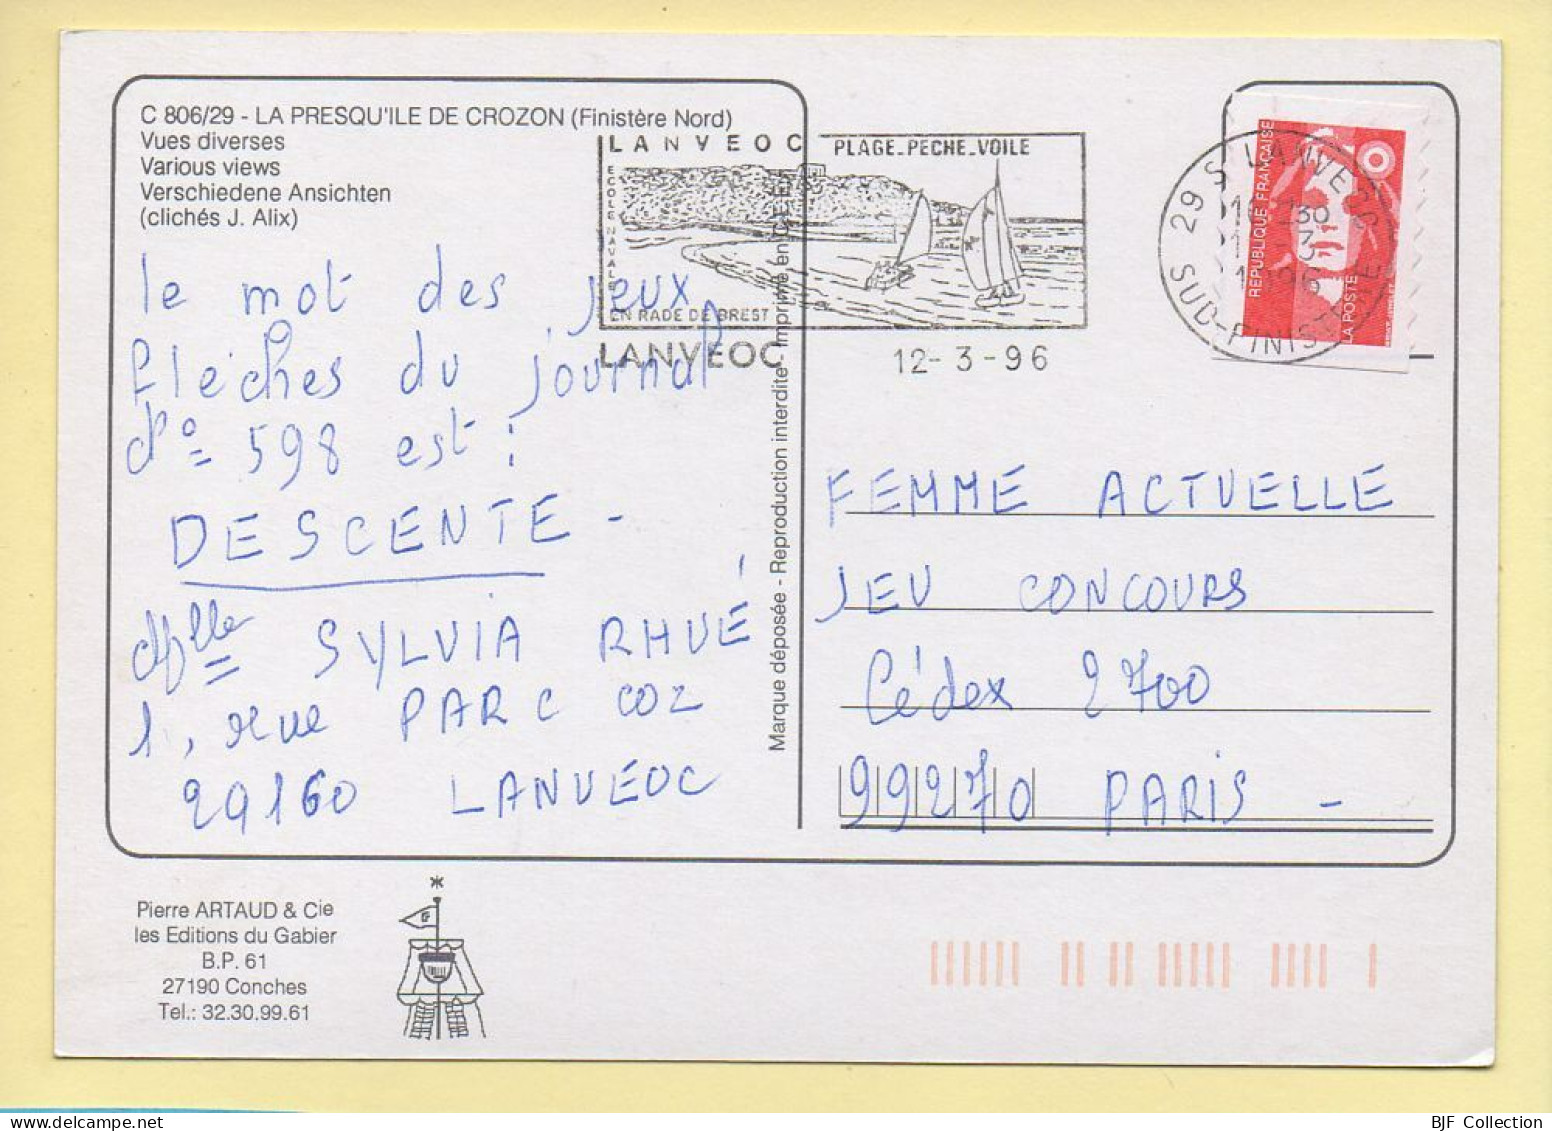 C 806/29 - LA PRESQU'ILE DE CROZON (Finistère Nord)
Vues diverses
Various views
Verschiedene Ansichten
(clichés J. Alix)
LANVEOC PLAGE_PECHE_VOILE
ECOLE NAVALE
EN RADE DE BREST
LANVEOC 12-3-96
29 S LANVEOC
SUD-FINISTERE
REPUBLIQUE FRANÇAISE
LA POSTE
le mot des jeux
fleches du journal
598 est :
DESCENTE -
SYLVIA RHUÉ
1, rue PARC COZ
29160 LANVEOC
Marque déposée - Reproduction interdite - Imprimé en C.E.E.
FEMME ACTUELLE
JEU CONCOURS
Cédex 2700
99270 PARIS -
Pierre ARTAUD & Cie
les Editions du Gabier
B.P. 61
27190 Conches
Tel.: 32.30.99.61
BJF Collection